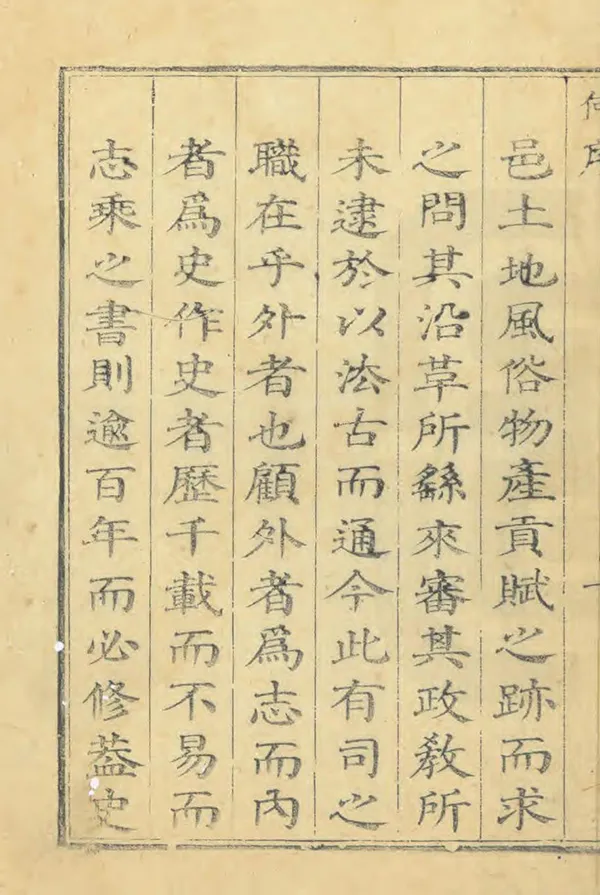 序
邑土地風俗物產貢賦之跡而求
之問其沿草所繇來審其政教所
未逮於以法古而通今此有司之
職在乎外者也顧外者爲志而內
者爲史作史者歷千載而不易而
志乘之書則逾百年而必修葢史